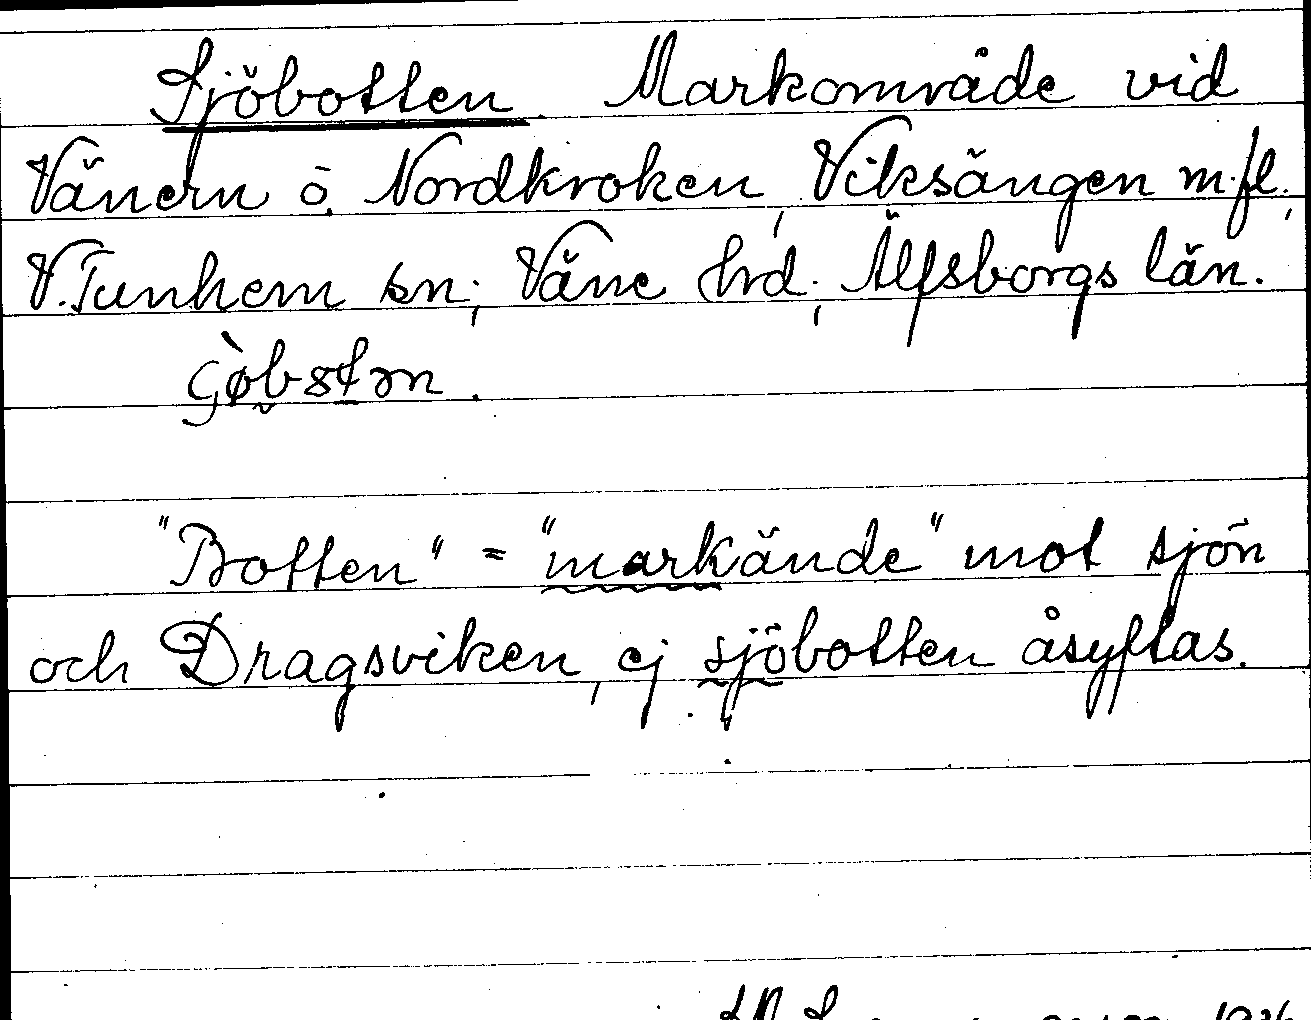 Sjöbotten. Markområde vid
Vänern ö. Nordkroken, Viksängen m.fl.,
V.Tunhem sn; Väne hrd; Älfsborgs län.
"Botten" = "markände" mot sjön
och Dragsviken, ej sjöbotten åsyftas.